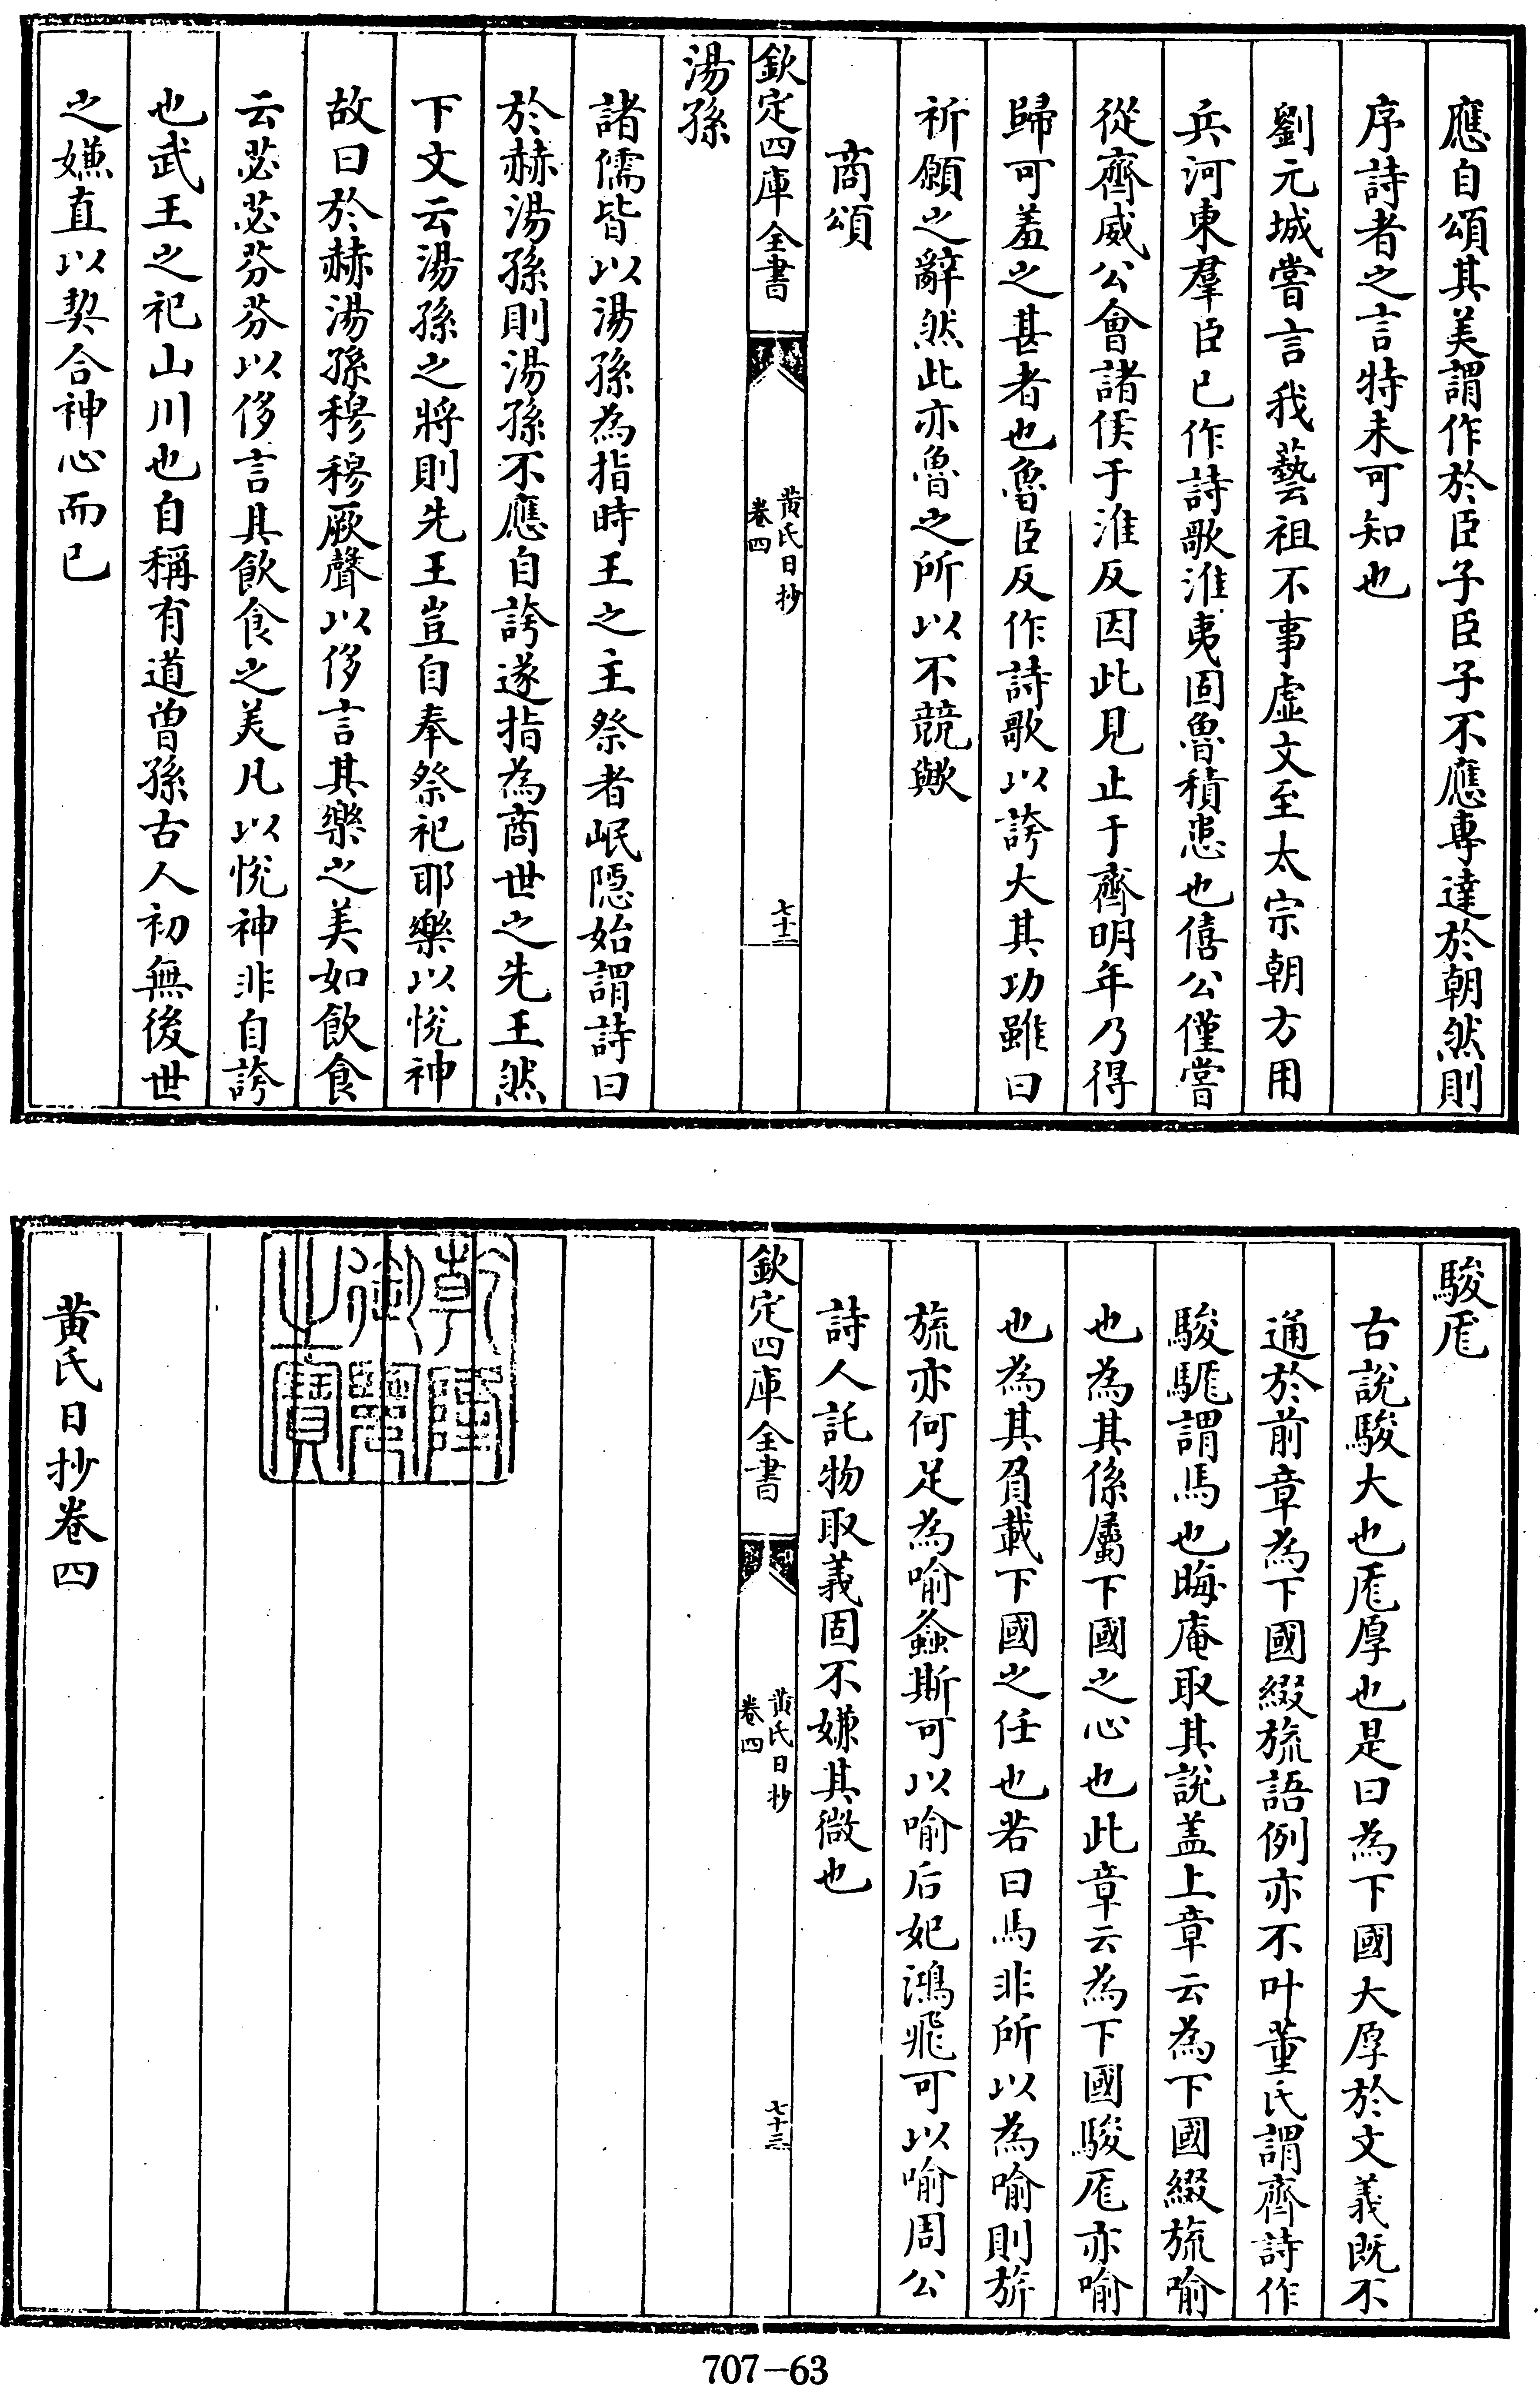 應自頌其美謂作於臣子臣子不應專達於朝然則
序詩者之言特未可知也
劉元城嘗言我藝祖不事虛文至太宗朝方用
兵河東羣臣已作詩歌淮夷固魯積患也僖公僅嘗
從齊威公會諸侯于淮反因此見止于齊明年乃得
歸可羞之甚者也魯臣反作詩歌以誇大其功雖曰
祈願之辭然此亦魯之所以不競歟
商頌
欽定四庫全書
黄氏日抄
卷四
七十二
湯孫
諸儒皆以湯孫為指時王之主祭者岷隠始謂詩曰
於赫湯孫則湯孫不應自誇遂指為商世之先王然
下文云湯孫之將則先王豈自奉祭祀耶樂以悅神
故曰於赫湯孫穆穆厥聲以侈言其樂之美如飲食
云苾苾芬芬以侈言具飲食之美凡以悅神非自誇
也武王之祀山川也自稱有道曽孫古人初無後世
之嫌直以契合神心而已
駿厖
古説駿大也厖厚也是曰為下國大厚於文義既不
通於前章為下國綴旒語例亦不叶董氏謂齊詩作
駿駹謂馬也晦庵取其説盖上章云為下國綴旒喻
也為其係屬下國之心也此章云為下國駿厖亦喻
也為其負載下國之任也若曰馬非所以為喻則旂
旒亦何足為喻螽斯可以喻后妃鴻飛可以喻周公
詩人託物取義固不嫌其微也
欽定四庫全書
黄氏日抄
卷四
七十三
乾隆
御覽
之寳
黄氏日抄卷四
707-63